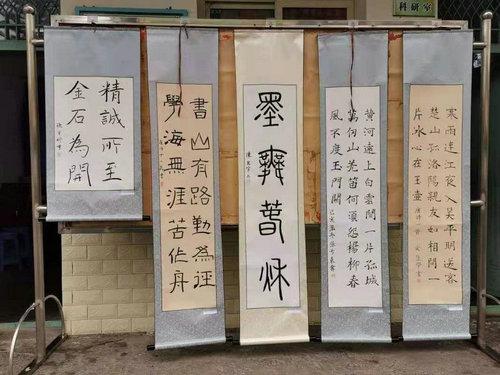 科研室
精誠所至
金石為開
書山有路勤為徑
學海無涯苦作舟
墨舞春秋
黄河遠上白雲間一片孤城
萬仞山羌笛何須怨楊柳春
風不度玉門關
寒雨連江夜入吴平明送客
楚山孤洛陽親友如相問一
片冰心在玉壺